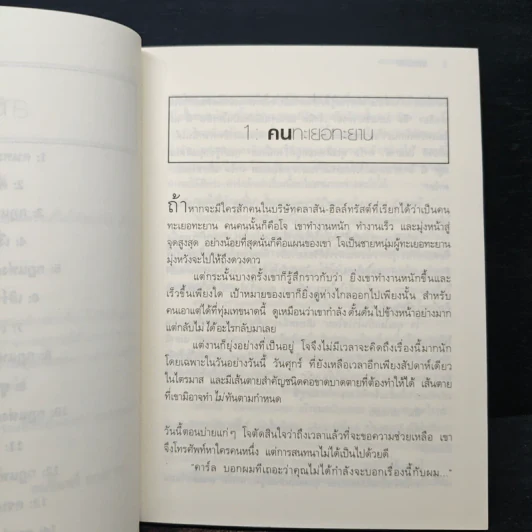 1 : คนทะเยอทะยาน
ถ้าหากจะมีใครสักคนในบริษัทคลาสัน-ฮิลล์ทรัสต์ที่เรียกได้ว่าเป็นคน
ทะเยอทะยาน คนคนนั้นก็คือโจ เขาทำงานหนัก ทำงานเร็ว และมุ่งหน้าสู่
จุดสูงสุด อย่างน้อยที่สุดนั่นก็คือแผนของเขา โจเป็นชายหนุ่มผู้ทะเยอทะยาน
มุ่งหวังจะไปให้ถึงดวงดาว
แต่กระนั้นบางครั้งเขาก็รู้สึกราวกับว่า ยิ่งเขาทำงานหนักขึ้นและ
เร็วขึ้นเพียงใด เป้าหมายของเขาก็ยิ่งดูห่างไกลออกไปเพียงนั้น สำหรับ
คนเอาแต่ได้ที่ทุ่มเทขนาดนี้ ดูเหมือนว่าเขากำลังดั้นด้นไปข้างหน้าอย่างมาก
แต่กลับไม่ได้อะไรกลับมาเลย
แต่งานก็ยุ่งอย่างที่เป็นอยู่ โจจึงไม่มีเวลาจะคิดถึงเรื่องนี้มากนัก
โดยเฉพาะในวันอย่างวันนี้ วันศุกร์ ที่ยังเหลือเวลาอีกเพียงสัปดาห์เดียว
ในไตรมาส และมีเส้นตายสำคัญชนิดคอขาดบาดตายที่ต้องทำให้ได้ เส้นตาย
ที่เขามิอาจทำไม่ทันตามกำหนด
วันนี้ตอนบ่ายแก่ๆ โจตัดสินใจว่าถึงเวลาแล้วที่จะขอความช่วยเหลือ เขา
จึงโทรศัพท์หาใครคนหนึ่ง แต่การสนทนาไม่ได้เป็นไปด้วยดี
"คาร์ล บอกผมทีเถอะว่าคุณไม่ได้กำลังจะบอกเรื่องนี้กับผม..."